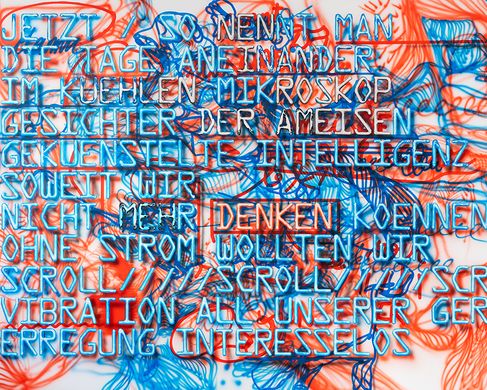 JETZT / SO NENNT MAN
DIE TAGE ANEINANDER
IM KUEHLEN MIKROSKOP
GESICHTER DER AMEISEN
GEKUENSTELTE INTELLIGENZ
SOWEIT WIR
NICHT MEHR DENKEN KOENNEN
OHNE STROM WOLLTEN WIR
SCROLL/////SCROLL//////SCR
VIBRATION ALL UNSERER GER
ERREGUNG INTERESSELOS